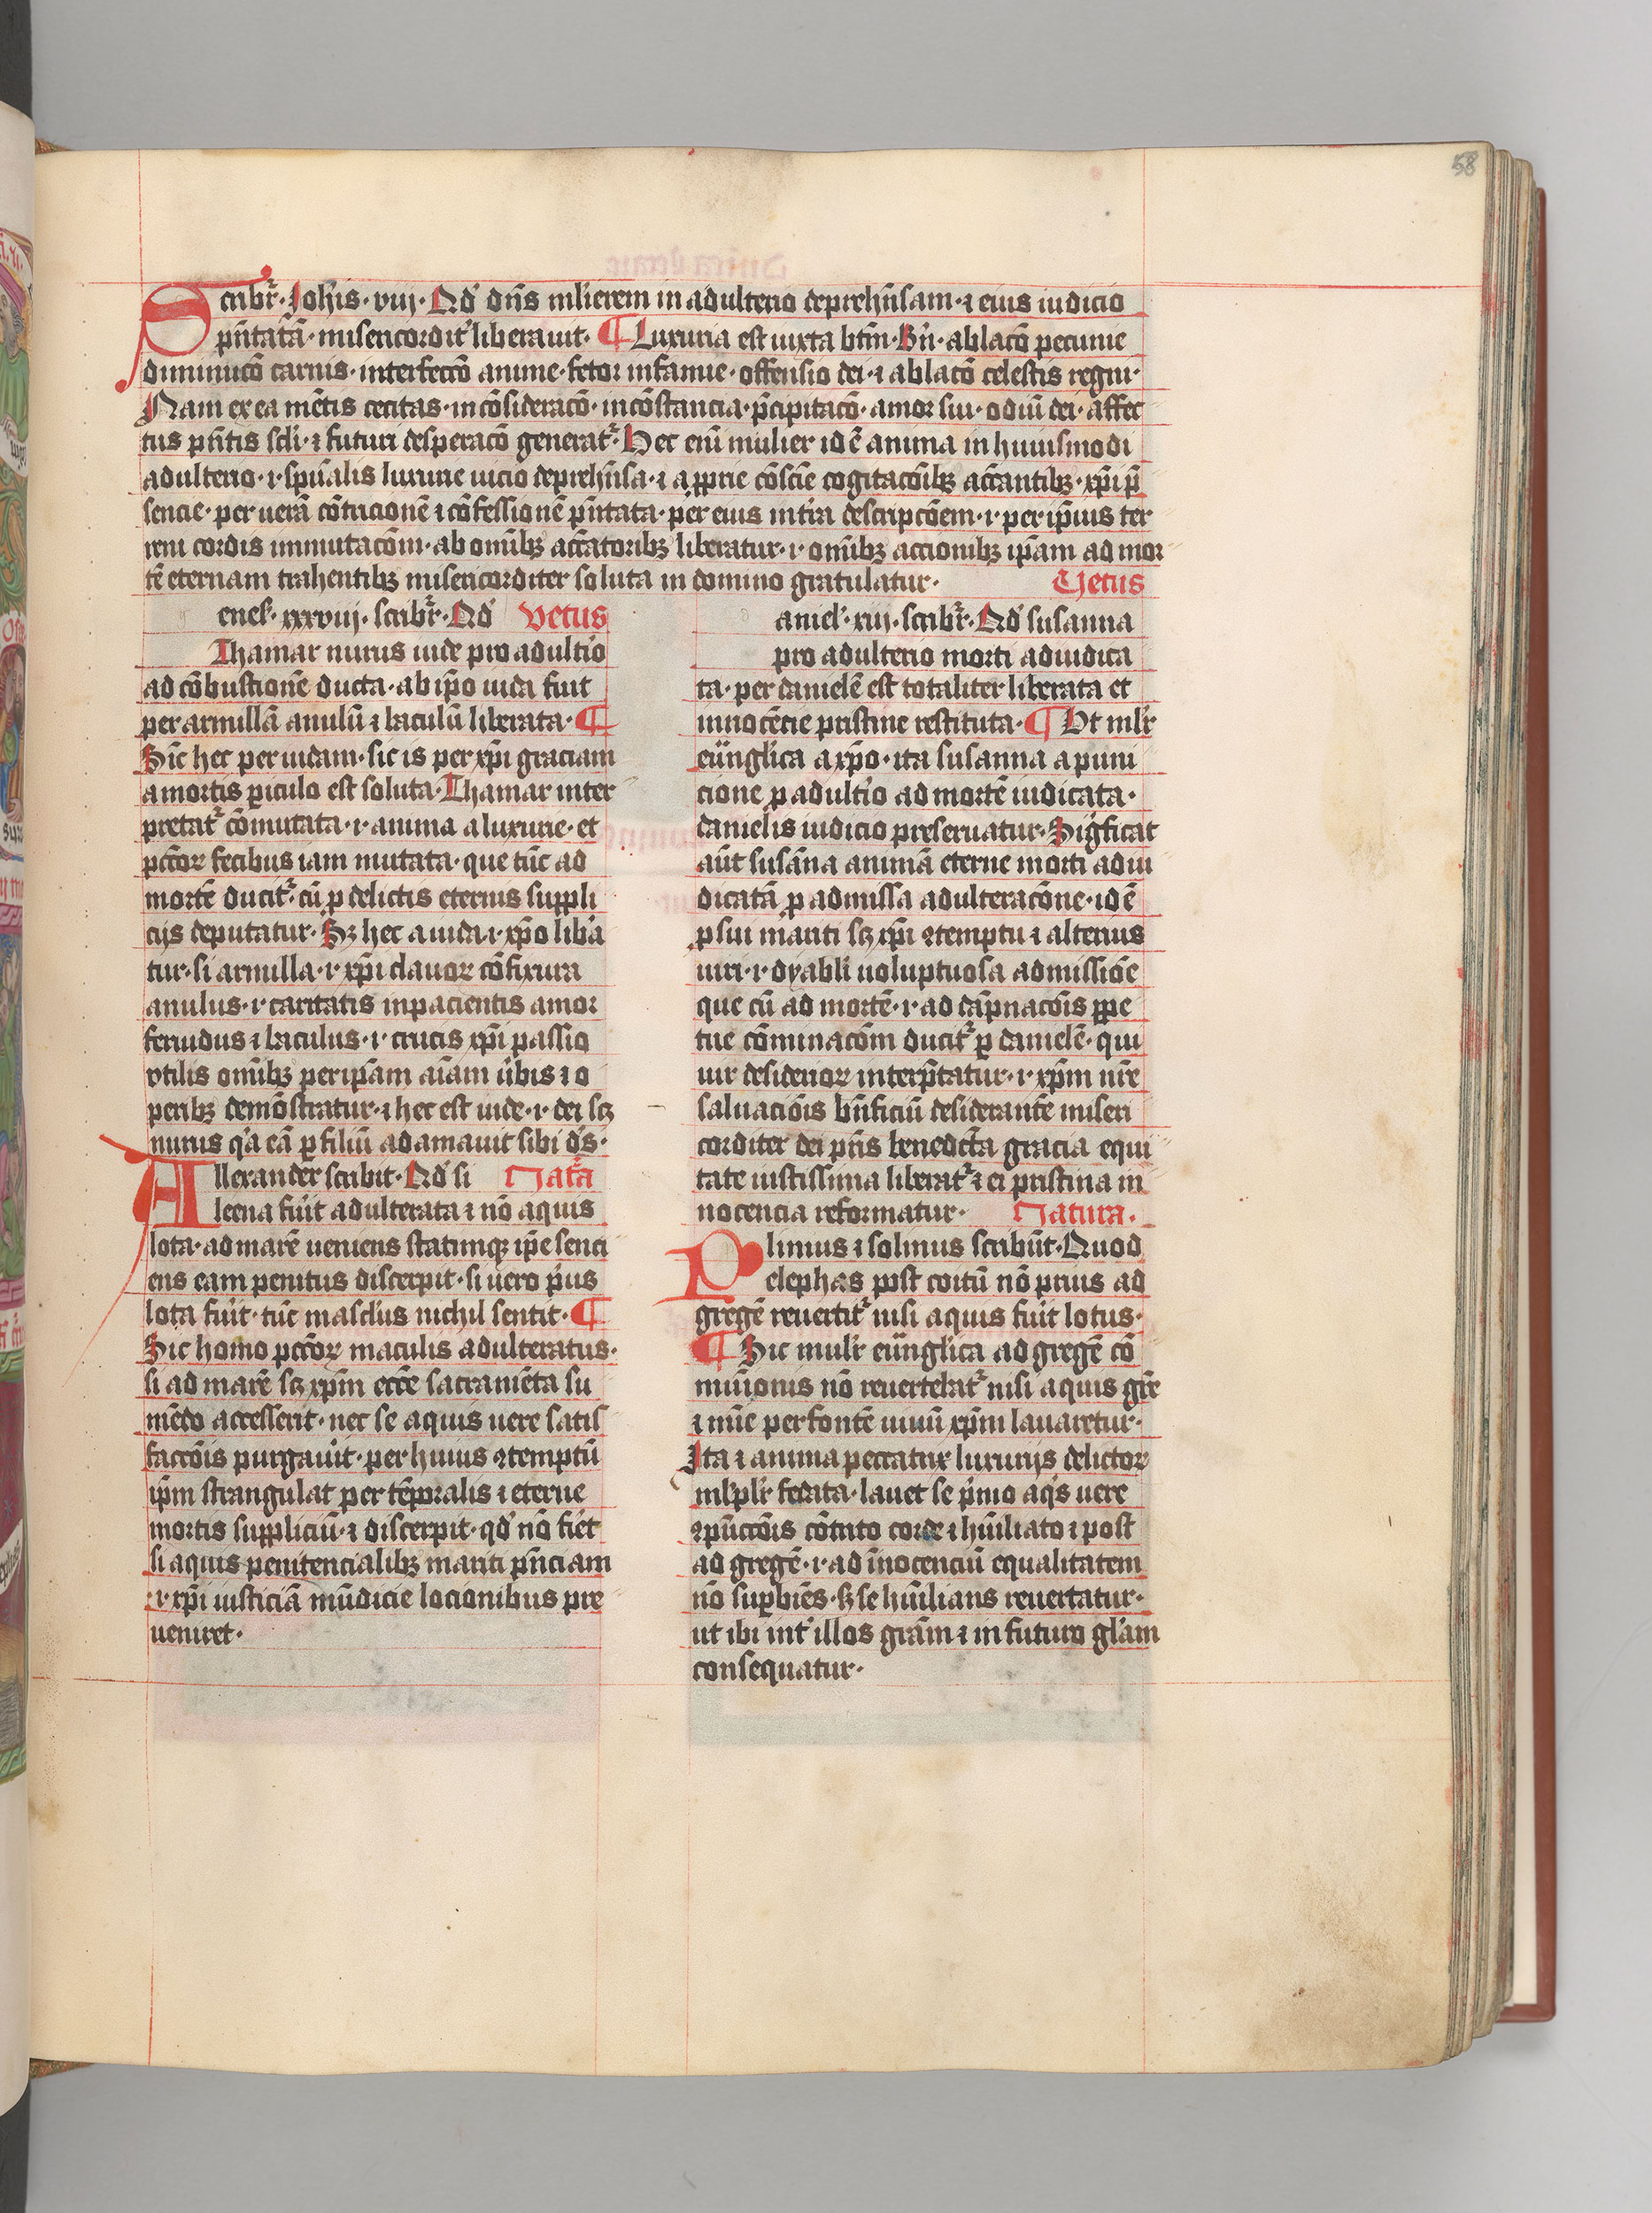 58
Scribr̃· Johis· viij· Qd̕ dn̄s mlierem in adulterio deprehn̄sam· ⁊ eius iudicio
pn̄tatā· misericordit̕ liberauit· ¶ Luxuria est iuxta btm̄· Bn̄· ablacō pecunie
diminucō carnis· interfeccō anime· fetor infamie· offensio dei· ⁊ ablacō celestis regni·
Nam ex ea mētis cecitas· incōsideracō· incōstancia· p̄cipitacō· amor sui· odiū dei· affec
tus pn̄tis scl̕i· ⁊ futuri desperacō generat᷑· Hec em̄ mulier id ē anima in huiusmodi
adulterio· .i. spūalis luxurie vicio deprehn̄sa· ⁊ a ꝓprie cōscīe cogitacōibꝫ accantibꝫ· xp̄i p̄
sencie· per uerā cōtricionē ⁊ cōfessionē pn̄tata· per eius int̕ra descripcōem· .i. per ip̄ius ter
reni cordis immutacōm· ab omībꝫ accatoribꝫ liberatur· .i. omībꝫ accionibꝫ ip̄am ad mor
tē eternam trahentibꝫ misericorditer soluta in domino gratulatur· Vetus
enes̕· xxxviij· scribr̃· Qd̕ Vetus
Thamar nurus iude pro adult̕io
ad cōbustionē ducta· ab ip̄o iuda fuit
per armillā anulū ⁊ baculū liberata· ¶
Sic̄ hec per iudam· sic is per xp̄i graciam
a mortis ꝑiculo est soluta· Thamar inter
pretat᷑ cōmutata· .i. anima a luxurie· et
pctōꝝ fecibus iam mutata· que tūc ad
mortē ducit᷑· cū ꝓ delictis eternis suppli
cijs deputatur· Sꝫ hec a iuda .i. xp̄o lib̕a
tur· si armilla· .i. xp̄i clauoꝝ cōfixura
anulus· .i. caritatis inpacientis amor
feruidus ⁊ baculus· .i. crucis xp̄i passio
vtilis omībꝫ per ip̄am aīam u̕bis ⁊ o
peribꝫ demōstratur· ⁊ hec est iude· .i. dei scꝫ
nurus q̕a eā ꝑ filiū adamauit sibi dō̄s·
Allexander scribit· Qd̕ si Nat̕a
leena fu̕it adulterata ⁊ nō aquis
lota· ad marē ueniens statimqꝫ ip̄e senci
ens eam penitus discerpit· si uero p̕us
lota fu̕it· tūc mascl̕us nichil sentit· ¶
Sic homo pctōꝝ maculis adulteratus·
si ad marē scꝫ xp̄m eccē sacramēta su
mēdo accesserit· nec se aquis uere satis
faccōis purgau̕it· per huius ꝯtemptū
ip̄m strangulat per tēporalis ⁊ eterne
mortis suppliciū· ⁊ discerpit· qd̕ nō fiet
si aquis penitencialibꝫ mariti pn̄ciam
.i. xp̄i iusticiā mūdicie locionibus pre
ueniret·
aniel̕· xiij· scribr̃· Qd̕ susanna
pro adulterio morti adiudica
ta· per danielē est totaliter liberata et
innocēcie pristine restituta· ¶ Ut ml̕r
eūnglica a xp̄o· ita susanna a puni
cione ꝓ adult̕io ad mortē iudicata·
danielis iudicio preseruatur· Sigficat
aūt susāna animā eterne morti adiu
dicatā ꝓ admissa adulteracōne· id ē
ꝓ sui mariti scꝫ xp̄i ꝯtemptu ⁊ alterius
uiri· .i. dyabli uoluptuosa admissiōe
que cū ad mortē· .i. ad dāpnacōis ꝑpe
tue cōminacōm ducit᷑ ꝑ danielē· qui
uir desidērioꝝ interp̄tatur· .i. xp̄m nr̄e
saluaciōis bn̄ficiū desiderantē miseri
corditer dei pr̄is benedicta gracia equi
tate iustissima liberat᷑ ⁊ ei pristina in
nocencia reformatur· Natura·
Plinius ⁊ solinus scribūt· Quod
elephas post coitū nō prius ad
gregē reuertit᷑ nisi aquis fu̕it lotus·
¶ Sic muli̕r eūnglica ad gregē cō
muīonis nō reuertebat᷑ nisi aquis gr̄e
⁊ mīe per fontē uiuū xp̄m lauaretur·
Ita ⁊ anima peccatrix luxurijs delictoꝝ
ml̕pli̕r fedata· lauet se p̕mo aq̕s uere
ꝯpūccōis cōtrito corde ⁊ hūiliato ⁊ post
ad gregē· .i. ad īnocenciū equalitatem
nō suꝑbiēs· sꝫ se hūilians reuertatur·
ut ibi int̕ illos grām ⁊ in futuro gl̕am
consequatur·